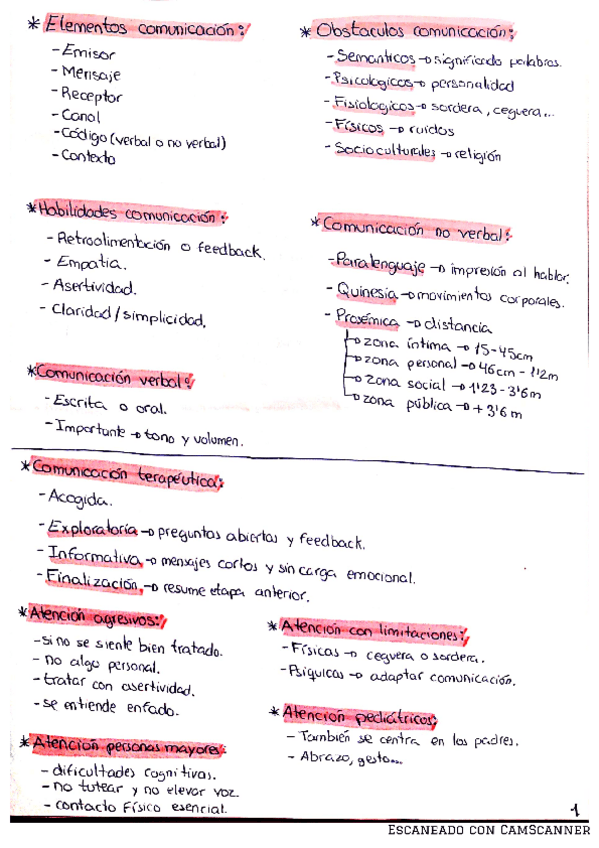 * Elementos comunicación:
- Emisor
- Mensaje
- Receptor
- Canal
- Código (verbal o no verbal)
- Contexto
* Obstaculos comunicación:
- Semanticos → significado palabras.
- Psicologicos → personalidad
- Fisiologicos → sordera, ceguera...
- Físicos → ruidos
- Socioculturales → religión
* Habilidades comunicación:
- Retroalimentación o feedback.
- Empatia.
- Asertividad.
- Claridad/simplicidad.
* Comunicación no verbal:
- Paralenguaje → impresión al hablar.
- Quinesia → movimientos corporales.
- Proxémica → distancia
→ zona íntima → 15-45cm
→ zona personal → 46cm - 1'2m
→ zona social → 1'23 - 3'6m
→ zona pública → + 3'6m
* Comunicación verbal:
- Escrita o oral.
- Importante → tono y volumen.
* Comunicación terapéutica:
- Acogida.
- Exploratoria → preguntas abiertas y feedback.
- Informativa → mensajes cortos y sin carga emocional.
- Finalización → resume etapa anterior.
* Atención agresivos:
- si no se siente bien tratado.
- no algo personal.
- tratar con asertividad.
- se entiende enfado.
* Atención con limitaciones:
- Físicas → ceguera o sordera.
- Psíquicas → adaptar comunicación.
* Atención pediátricos:
- También se centra en los padres.
- Abrazo, gesto...
* Atención personas mayores:
- dificultades cognitivas.
- no tutear y no elevar voz.
- contacto físico esencial.
1
Escaneado con CamScanner